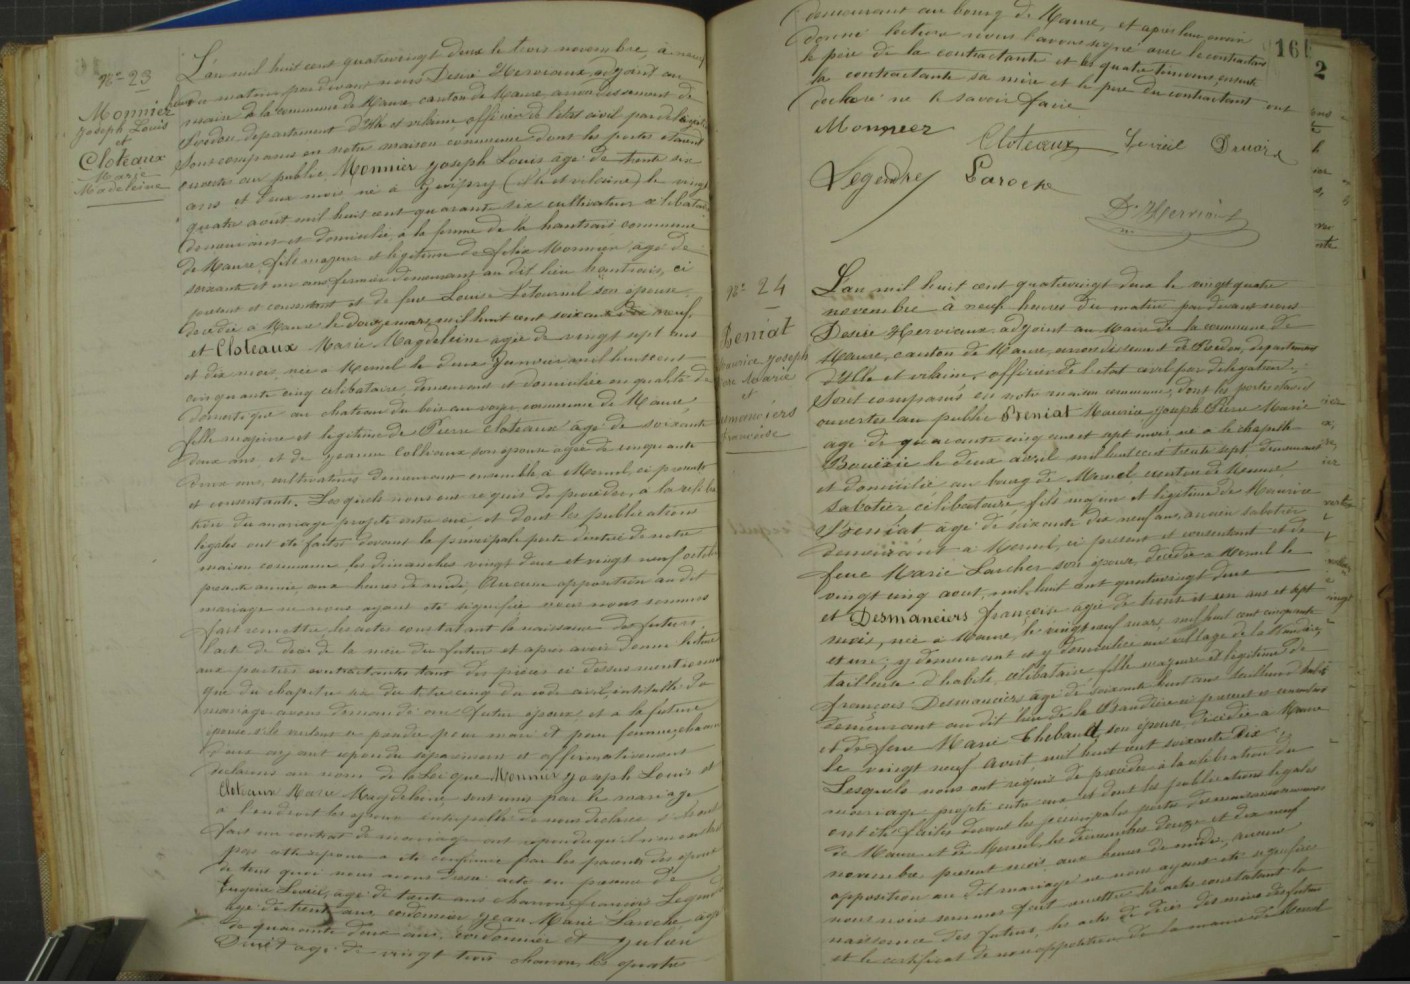 No 23
Monnier
Joseph Louis
et
Cloteaux
Marie
Madeleine
L'an mil huit cent quatrevingt deux le trois novembre, à neuf
heures du matin par devant nous Désiré Hervieaux, adjoint au
maire de la commune de Maure, canton de Maure arrondissement de
Redon département d'Ille et vilaine, officier de l'état civil par délégation
Sont comparus en notre maison commune dont les portes étaient
ouvertes au public Monnier Joseph Louis âgé de trente six
ans et deux mois né à Guipry (ille et vilaine) le vingt
quatre aout mil huit cent quarante six cultivateur célibataire
demeurant et domicilié à la ferme de la hautrais commune
de Maure, fils majeur et légitime de félix Monnier âgé de
soixante et un ans fermier demeurant au dit lieu hautrais, ci
présent et consentant et de feue Louise Létournel son épouse
décédée à Maure le douze mars mil huit cent soixante dix neuf
et Cloteaux Marie Magdeleine agée de vingt sept ans
et dix mois née à Mernel le deux Janvier mil huit cent
cinquante cinq célibataire, demeurant et domiciliée en qualité de
domestique au chateau du bois au voyer commune de Maure,
fille majeure et légitime de Pierre Cloteaux agé de soixante
deux ans, et de Jeanne Colleaux son épouse agée de cinquante
deux ans, cultivateurs demeurant ensemble à Mernel, ci présents
et consentants. Lesquels nous ont requis de procéder à la célébra
tion du mariage projeté entre eux, et dont les publications
légales ont été faites devant la principale porte d'entrée de notre
maison commune les dimanches vingt deux et vingt neuf octobre
présente année, aux heures de midi; Aucune opposition au dit
mariage ne nous ayant été signifiée nous nous sommes
fait remettre les actes constatant la naissance des futurs,
l'acte de décès de la mère du futur et après avoir donné lecture
aux parties contractantes tant des pièces ci dessus mentionnées
que du chapitre six du titre cinq du code civil, intitulé du
mariage avons demandé au futur époux et à la future
épouse s'ils veulent se prendre pour mari et pour femme, chacun
d'eux ayant répondu séparément et affirmativement
déclarons au nom de la Loi que Monnier Joseph Louis et
Cloteaux Marie Magdeleine sont unis par le mariage
à l'endroit les époux interpellés de nous déclarer s'ils ont
fait un contrat de mariage ont répondu qu'il n'en
pas cette réponse a été confirmée par les parents des époux
de tout quoi nous avons dressé acte en présence de
Eugène agé de trente ans charron, françois Legendre
agé de trente ans cordonnier Jean Marie Laroche agé
de quarante deux ans, cordonnier et Julien
agé de vingt trois charron, les quatre
demeurant au bourg de Maure, et après leur avoir
donné lecture nous l'avons signé avec le contractant
le père de la contractante et les quatre témoins ensuite
la contractante sa mère et le père du contractant ont
déclaré ne le savoir faire
Monnier
Cloteaux
Legendre Laroche
D. Hervieaux
16
2
No 24
Préniat
Maurice Joseph
Pierre Marie
et
Desmanciers
Françoise
L'an mil huit cent quatrevingt deux le vingt quatre
novembre à neuf heures du matin par devant nous
Désiré Hervieaux adjoint au Maire de la commune de
Maure, canton de Maure, arrondissement de Redon, département
d'Ille et vilaine, officier de l'état civil par délégation,
Sont comparus en notre maison commune, dont les portes étaient
ouvertes au public Préniat Maurice Joseph Pierre Marie
agé de quarante cinq ans et sept mois né à la chapelle
Bouëxic le deux avril mil huit cent trente sept demeurant
et domicilié au bourg de Mernel canton de Maure
sabotier célibataire fils majeur et légitime de Maurice
Préniat agé de soixante dix neuf ans, ancien sabotier
demeurant à Mernel, ci présent et consentant et de
feue Marie Larcher son épouse, décédée à Mernel le
vingt cinq aout, mil huit cent quatrevingt deux
et Desmanciers françoise agée de trente et un ans et sept
mois, née à Maure, le vingt neuf mars, mil huit cent cinquante
et un; y demeurant et y domiciliée au village de la
tailleuse d'habits, célibataire fille majeure et légitime de
françois Desmanciers agé de soixante huit ans tailleur d'habits
demeurant au dit lieu de la ci présent et consentant
et de feue Marie Thebaud, son épouse décédée à Maure
le vingt neuf avril mil huit cent soixante dix;
Lesquels nous ont requis de procéder à la célébration du
mariage projeté entre eux et dont les publications légales
ont été faites devant les principales portes des maisons communes
de Maure et de Mernel, les dimanches douze et dix neuf
novembre présent mois aux heures de midi, aucune
opposition au dit mariage ne nous ayant été signifiée
nous nous sommes fait remettre les actes constatant la
naissance des futurs, les actes de décès des mères des futurs
et le certificat de non opposition de la mairie de Mernel